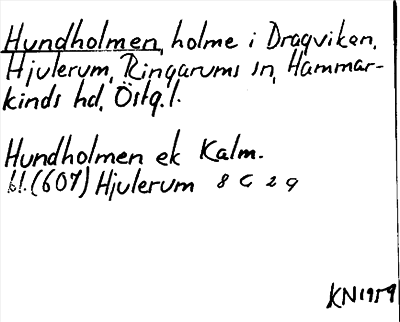 Hundholmen, holme i Dragviken,
Hjulerum, Ringarums sn, Hammar-
kinds hd, Östg.l.
Hundholmen ek Kalm.
bl. (607) Hjulerum 8 G 2 g
KN 1959